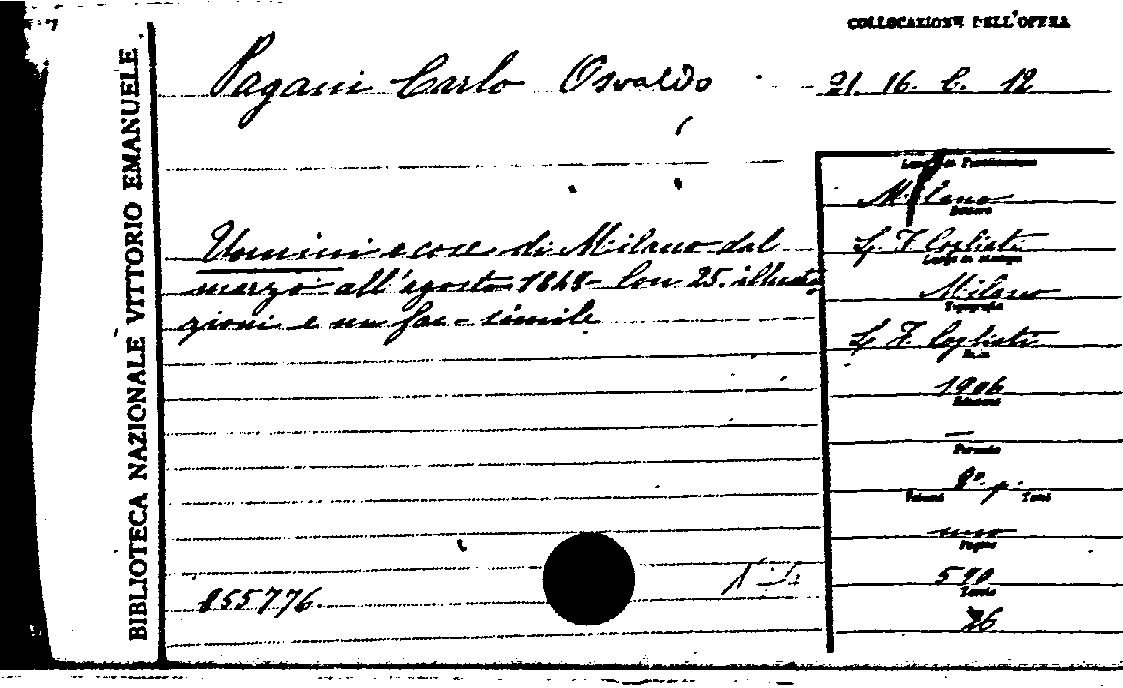 COLLOCAZIONE DELL'OPERA
BIBLIOTECA NAZIONALE VITTORIO EMANUELE
Pagani Carlo Osvaldo
21. 16. C. 12
Uomini e cose di Milano dal
marzo all'agosto 1848 - Con 25. illustra
zioni e un fac-simile
Luogo di Pubblicazione
Milano
Editore
L. F. Cogliati
Luogo di stampa
Milano
Tipografia
L. F. Cogliati
Data
1906
Edizione
—
Formato
8º. p.
Volumi Tomi
uno
Pagine
590
Tavole
26
855776